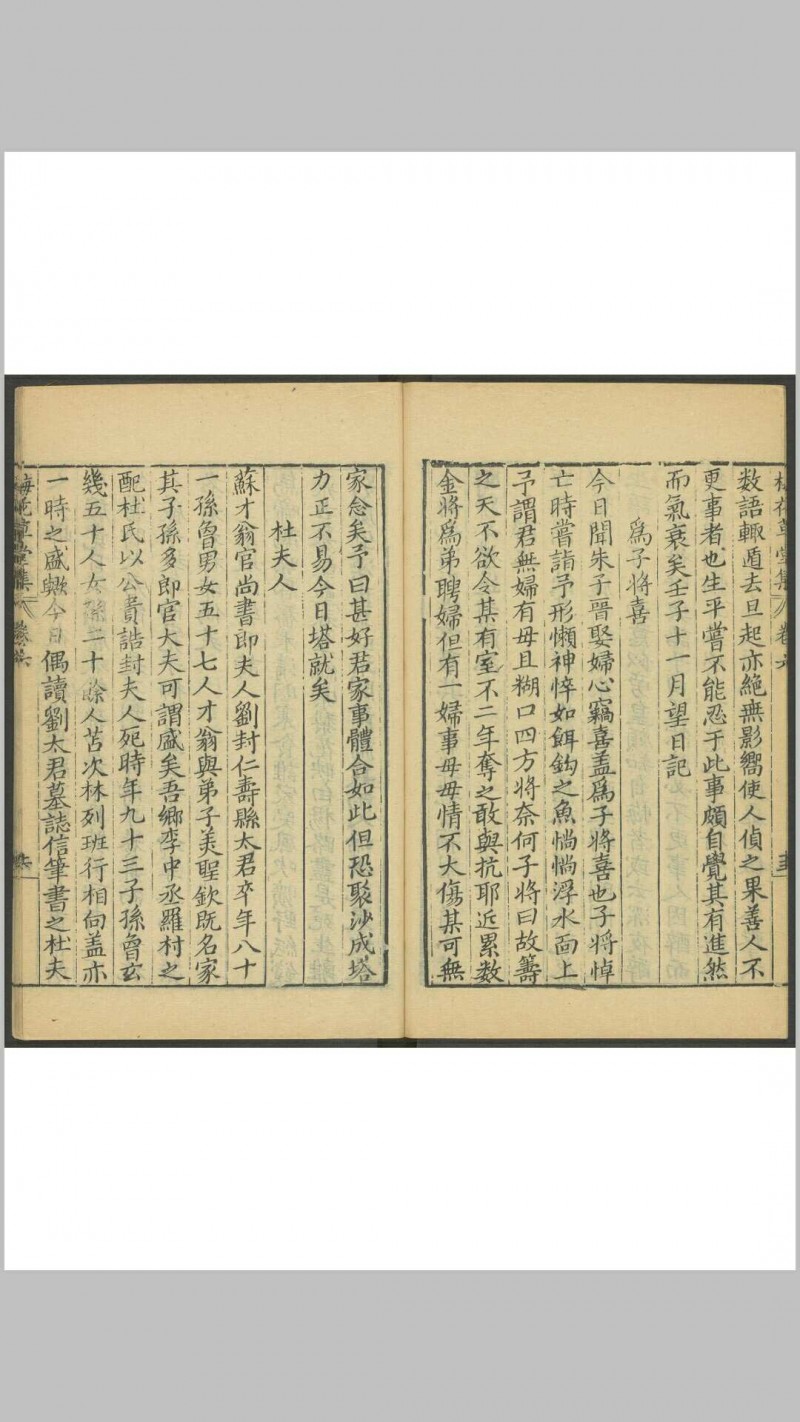 數語輙遁去旦起亦絶無影嚮使人偵之果善人不
更事者也生平嘗不能忍于此事頗自覺其有進然
而氣衰矣壬子十一月望日記
爲子將喜
今日聞朱子晋娶婦心竊喜盖爲子將喜也子將悼
亡時嘗詣予形懶神悴如餌鈎之魚惝惝浮水面上
予謂君無婦有母且糊口四方將奈何子將曰故籌
之天不欲令某有室不二年奪之敢與抗耶近累数
金將爲弟聘婦但有一婦事母母情不大傷某可無
家念矣予曰甚好君家事體合如此但恐聚沙成塔
力正不易今日塔就矣
杜夫人
蘇才翁官尚書郎夫人劉封仁壽縣太君卒年八十
一孫曾男女五十七人才翁與弟子美聖欽既名家
其子孫多郎官大夫可謂盛矣吾鄉李中丞羅村之
配杜氏以公貴誥封夫人死時年九十三子孫曾玄
幾五十人女孫二十餘人苫次林列班行相向盖亦
一時之盛歟今日偶讀劉太君墓誌信筆書之杜夫
梅花草堂集 卷六